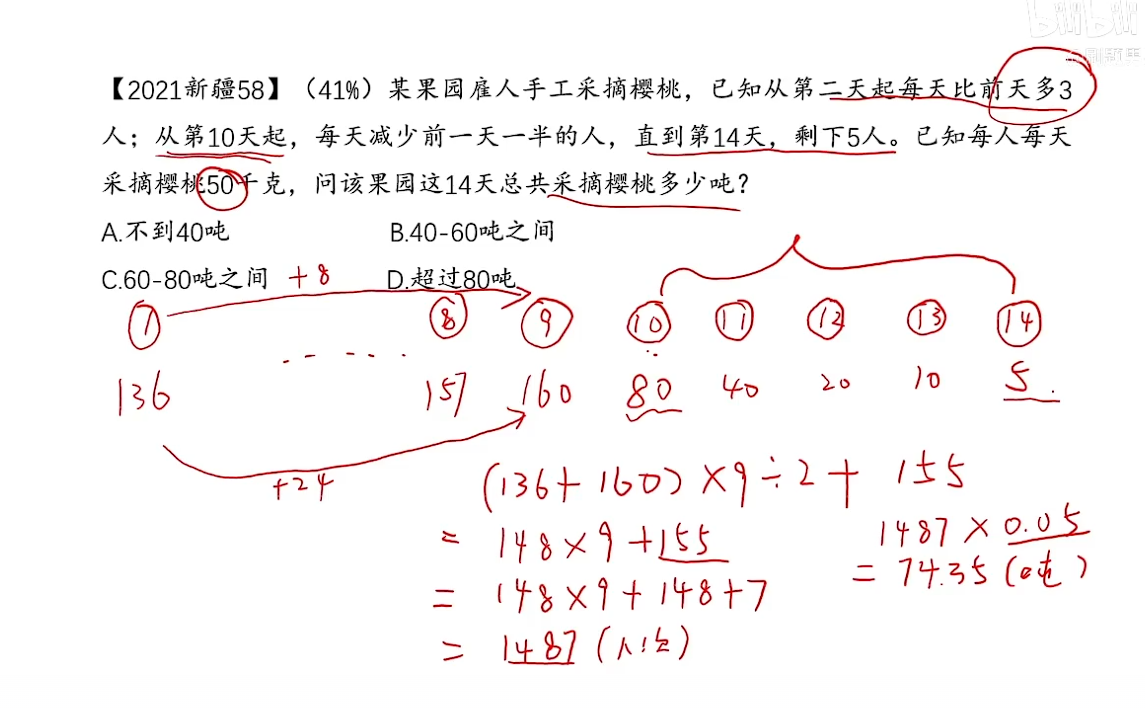 bilibili
【2021新疆58】（41%）某果园雇人手工采摘樱桃，已知从第二天起每天比前天多3
人；从第10天起，每天减少前一天一半的人，直到第14天，剩下5人。已知每人每天
采摘樱桃50千克，问该果园这14天总共采摘樱桃多少吨？
A.不到40吨 B.40-60吨之间
C.60-80吨之间 D.超过80吨
+8
① ⑧ ⑨ ⑩ ⑪ ⑫ ⑬ ⑭
136 ...... 157 160 80 40 20 10 5
+24
(136+160)×9÷2+155
=148×9+155
1487×0.05
=74.35(吨)
=148×9+148+7
=1487(人次)